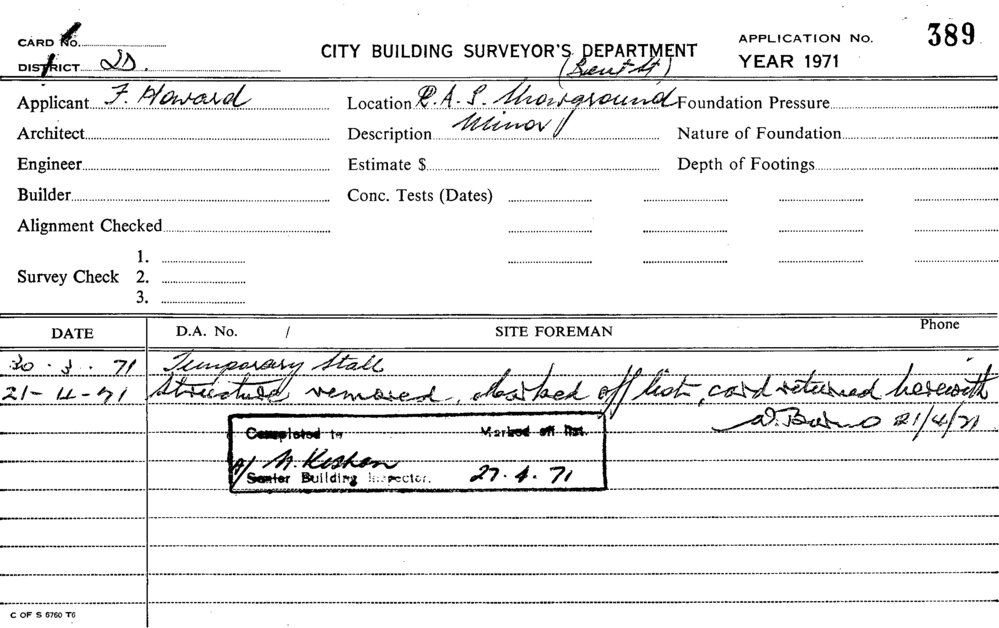 CARD No.
CITY BUILDING SURVEYOR'S DEPARTMENT
APPLICATION No. 389
YEAR 1971
DISTRICT
Applicant F. Howard
Location R.A.S. Showground
Foundation Pressure
Architect
Description Minor
Nature of Foundation
Engineer
Estimate $
Depth of Footings
Builder
Conc. Tests (Dates)
Alignment Checked
Survey Check
1.
2.
3.
DATE
D.A. No. /
SITE FOREMAN
Phone
30 . 3 . 71 Temporary Stall
21-4-71 Structure removed, marked off list, card returned herewith
21/4/71
Completed
Marked off list.
A/
Senior Building Inspector.
27.4.71
C OF S 5760 T6